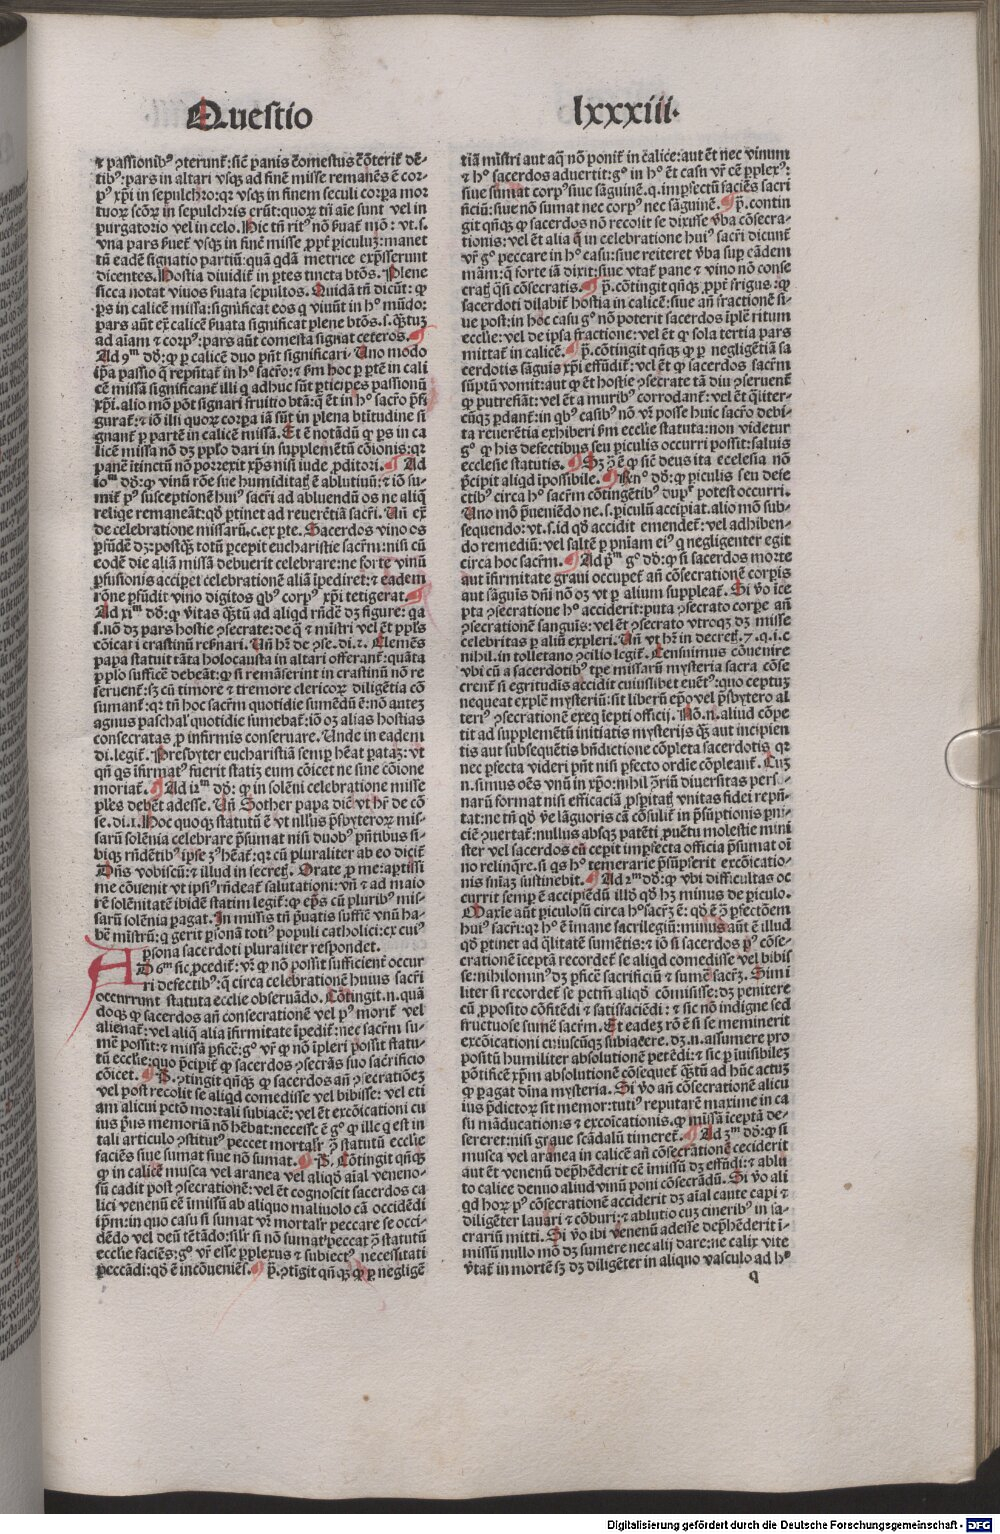 Questio
lxxxiii.
⁊ passionibꝰ ↄterunt᷑: sic̄ panis c̄omestus c̄ōterit᷑ dē-
tibꝰ: pars in altari vsqꝫ ad finē misse remanēs ē cor-
pꝰ xp̄i in sepulchro: qr vsqꝫ in finem seculi corpa mor
tuoꝝ scōꝝ in sepulchris erūt: quoꝝ tn̄ aīe sunt vel in
purgatorio vel in celo. Hic tn̄ ritꝰ nō ẜuat᷑ mō: vt.s.
vna pars ẜuet᷑ vsqꝫ in finē misse ꝓpt᷑ ꝑiculuꝫ: manet
tn̄ eadē signatio partiū: quā qdā metrice exp̄sserunt
dicentes. Hostia diuidit᷑ in ꝑtes tincta btōs. Plene
sicca notat viuos ẜuata sepultos. Quidā tn̄ dicūt: ꝙ
ꝑs in calicē missa: significat eos q viuūt in hͦ mūdo:
pars aūt ext᷑ calicē ẜuata significat plene btōs.s. qꝫtuꝫ
ad aīam ⁊ corpꝰ: pars aūt comesta signat ceteros.
Ad 9ᵐ dd̄: ꝙ ꝑ calicē duo pn̄t significari. Uno modo
ip̄a passio q̄ rep̄ntat᷑ in hͦ sacrͦ: ⁊ ẜm hoc ꝑ ꝑtē in cali
cē missā significant᷑ illi q adhuc sūt ꝑticipes passionū
xp̄i. alio mō pōt signari fruitio btā: q̄ ēt in hͦ sacrͦ p̄fi
gurat᷑: ⁊ iō illi quoꝝ corpa iā sūt in plena btitudine si
gnant᷑ ꝑ partē in calicē missā. Et ē notādū ꝙ ꝑs in ca
licē missa nō dꝫ pplo dari in supplemētū cōionis: qr
panē itinctū nō porrexit xp̄s nisi iude ꝓditori. Ad
10ᵐ dd̄: ꝙ vinū rōne sue humiditat᷑ ē ablutiuū: ⁊ iō su-
mit᷑ pꝰ susceptionē huiꝰ sacri ad abluendū os ne aliq̄
relige remaneāt: qd̄ ꝑtinet ad reuerētiā sacri. Un̄ ex̄
de celebratione missarū.c.ex ꝑte. Sacerdos vino os
ꝑfūdē dꝫ: postqꝫ totū ꝑcepit eucharistie sacrm: nisi cū
eodē die aliā missā debuerit celebrare: ne forte vinū
ꝑfusionis accipet celebrationē aliā īpediret: ⁊ eadem
rōne ꝑfūdit vino digitos qbꝰ corpꝰ xp̄i tetigerat.
Ad xiᵐ dd̄: ꝙ v̄itas qꝫtū ad aliqd rn̄dē dꝫ figure: qa
s. nō dꝫ pars hostie ↄsecrate: de q̄ ⁊ mīstri vel ēt ppl̄s
cōicat᷑ i crastinū reẜuari. Un̄ hr̄ de ↄse.di.2. Clemēs
papa statuit tāta holocausta in altari offerant᷑: quāta
pplo sufficē debeāt: ꝙ si remāserint in crastinū nō re
ẜeruent᷑: sꝫ cū timore ⁊ tremore clericoꝝ diligētia cō
sumant᷑. qr tn̄ hoc sacrm quotidie sumēdū ē: nō auteꝫ
agnus paschal᷑ quotidie sumebat᷑: iō oꝫ alias hostias
consecratas ꝓ infirmis conseruare. Unde in eadem
di. legit᷑. Presbyter eucharistiā semꝑ hēat pataꝫ: vt
qn̄ qs īfirmatꝰ fuerit statiꝫ eum cōicet ne sine cōione
moriat᷑. Ad 12ᵐ dd̄: ꝙ in solēni celebratione misse
ples debēt adesse. Un̄ Sother papa dic̄ vt hr̄ de cō
se.di.1. Hoc quoqꝫ statutū ē vt nllus p̄sbyteroꝝ mis-
sarū solēnia celebrare p̄sumat nisi duobꝰ pn̄tibus si-
biqꝫ rn̄dētibꝰ ipse 3ꝰ hēat᷑: qr cū pluraliter ab eo dicit᷑
Dn̄s vobiscū: ⁊ illud in secret᷑. Orate ꝓ me: aptissi
me cōuenit vt ipsiꝰ rn̄deat᷑ salutationi: vn̄ ⁊ ad maio
rē solēnitatē ibidē statim legit᷑: ꝙ ep̄s cū pluribꝰ mis-
sarū solēnia ꝑagat. In missis tn̄ p̄uatis suffic̄ vnū ha-
bē mīstrū: q gerit ꝑsonā totiꝰ populi catholici: ex cuiꝰ
ꝑsona sacerdoti pluraliter respondet.
AD 6ᵐ sic ꝓcedit᷑: vr̄ ꝙ nō possit sufficient᷑ occur
ri defectibꝰ: q̄ circa celebrationē huius sacri
occurrunt statuta ecclie obseruādo. Cōtingit.n. quā
doqꝫ ꝙ sacerdos an̄ consecrationē vel pꝰ morit᷑ vel
alienat᷑: vel aliq̄ alia īfirmitate īpedit᷑: nec sacrm su-
mē possit: ⁊ missā ꝑficē: gͦ vr̄ ꝙ nō īpleri possit statu-
tū ecclie: quo p̄cipit᷑ ꝙ sacerdos ↄsecrās suo sacrificio
cōicet. P̄. ↄtingit qn̄qꝫ ꝙ sacerdos an̄ ↄsecratiōeꝫ
vel post recolit se aliqd comedisse vel bibisse: vel eti
am alicui pctō mortali subiacē: vel ēt excōicationi cu
ius pꝰus memoriā nō hēbat: necesse ē gͦ ꝙ ille q est in
tali articulo ↄstitutꝰ peccet mortal᷑r ↄ̄ statutū ecclie
faciēs siue sumat siue nō sumat. P̄. Cōtingit qn̄qꝫ
ꝙ in calicē musca vel aranea vel aliqd̄ aīal veneno-
sū cadit post ↄsecrationē: vel ēt cognoscit sacerdos ca
lici venenū eē īmissū ab aliquo maliuolo cā occidēdi
ip̄m: in quo casu si sumat vr̄ mortal᷑r peccare se occi-
dēdo vel deū tētādo: sil᷑r si nō sumat ꝑeccat ↄ̄ statutū
ecclie faciēs: gͦ vr̄ esse ꝑplexus ⁊ subiectꝰ necessitati
peccādi: qd̄ ē incōueniēs. P̄. ↄtīgit qn̄qꝫ ꝙ ꝑ negligē
tiā mīstri aut aq̄ nō ponit᷑ in calice: aut ēt nec vinum
⁊ hͦ sacerdos aduertit: gͦ in hͦ ēt casu vr̄ cē ꝑplexꝰ:
siue sumat corpꝰ siue sāguinē.q. imꝑfectū faciēs sacri
ficiū: siue nō sumat nec corpꝰ nec sāguinē. P̄. contin
git qn̄qꝫ ꝙ sacerdos nō recolit se dixisse v̄ba cōsecra-
tionis: vel ēt alia q̄ in celebratione huiꝰ sacri dicunt᷑
vr̄ gͦ peccare in hͦ casu: siue reiteret v̄ba sup eādem
mām: q̄ forte iā dixit: siue vtat᷑ pane ⁊ vino nō conse
erat᷑ q̄si cōsecratis. P̄. cōtingit qn̄qꝫ ꝓpt᷑ frigus: ꝙ
sacerdoti dilabit᷑ hostia in calicē: siue an̄ fractionē si-
ue post: in hoc casu gͦ nō poterit sacerdos īplē ritum
ecclie: vel de ipsa fractione: vel ēt ꝙ sola tertia pars
mittat᷑ in calicē. P̄. cōtingit qn̄qꝫ ꝙ ꝑ negligētiā sa
cerdotis sāguis xp̄i effūdit᷑: vel ēt ꝙ sacerdos sacrm
sūptū vomit: aut ꝙ ēt hostie ↄsecrate tā diu ↄseruent᷑
ꝙ putrefiāt: vel ēt a muribꝰ corrodant᷑: vel ēt qliter-
cūqꝫ ꝑdant᷑: in qbꝰ casibꝰ nō vr̄ posse huic sacrͦ debi-
ta reuerētia exhiberi ẜm ecclie statuta: non videtur
gͦ ꝙ his defectibus seu ꝑiculis occurri possit: saluis
ecclesie statutis. Sꝫ ↄ̄ ē ꝙ sic̄ deus ita ecclesia nō
p̄cipit aliqd īpossibile. Rn̄ᵒ dd̄: ꝙ piculis seu defe
ctibꝰ circa hͦ sacrm cōtingētibꝰ dupl᷑r potest occurri.
Uno mō p̄ueniēdo ne.s.piculū accipiat. alio mō sub-
sequendo: vt.s.id qd̄ accidit emendet᷑: vel adhiben-
do remediū: vel saltē ꝑ pn̄iam eiꝰ q negligenter egit
circa hoc sacrm. Ad pᵐ gͦ dd̄: ꝙ si sacerdos morte
aut īfirmitate graui occupet᷑ an̄ cōsecrationē corpis
aut sāguis dn̄i nō oꝫ vt ꝑ alium suppleat᷑. Si v̄o īce
pta ↄsecratione hͦ acciderit: puta ↄsecrato corpe an̄
ↄsecrationē sanguis: vel ēt ↄsecrato vtroqꝫ dꝫ misse
celebritas ꝑ aliū expleri. Un̄ vt hr̄ in decret᷑.7.q.i.c
nihil. in tolletano ↄcilio legit᷑. Censuimus cōuenire
vbi cū a sacerdotibꝰ tpe missarū mysteria sacra cōse
crent᷑ si egritudīs accidit cuiuslibet euētꝰ: quo ceptuꝫ
nequeat explē mysteriū: sit liberū ep̄o vel p̄sbytero al
teri ꝰ ↄsecrationē exeq īcepti officij. Nō.n. aliud cōpe
tit ad supplementū initiatis mysterijs qꝫ aut incipien
tis aut subsequētis bn̄dictione cōpleta sacerdotis qr
nec ꝑfecta videri pn̄t nisi ꝑfecto ordīe cōpleant᷑. Cuꝫ
n.simus oēs vnū in xp̄o: nihil ↄ̄riū diuersitas perso-
narū format nisi efficaciā ꝓspitat᷑ vnitas fidei repn̄-
tat: ne tn̄ qd̄ v̄e lāguoris cā cōsulit᷑ in p̄sūptionis pni-
ciē ↄuertat᷑: nullus absqꝫ patēti ꝓuētu molestie mini
ster vel sacerdos cū cepit imꝑfecta officia p̄sumat oī
no relinqre. si qs hͦ temerarie p̄sūpserit excōicatio-
nis snīaꝫ sustinebit. Ad 2ᵐ dd̄: ꝙ vbi difficultas oc
currit semꝑ ē accipiēdū illd̄ qd̄ hꝫ minus de piculo.
Maxīe aūt piculosū circa hͦ sacrꝫ ē: qd̄ ē ↄ̄ ꝑfectōem
huiꝰ sacri: qr hͦ ē imane sacrilegiū: minus aūt ē illud
qd̄ ꝑtinet ad qlitatē sumētis: ⁊ iō si sacerdos pꝰ cōse-
crationē īceptā recordet᷑ se aliqd comedisse vel bibis
se: nihilominꝰ dꝫ ꝑficē sacrificiū ⁊ sumē sacrꝫ. Simi
liter si recordet᷑ se pctm aliqd̄ cōmisisse: dꝫ penitere
cū ꝓposito cōfitēdi ⁊ satisfaciēdi: ⁊ sic nō indigne sed
fructuose sumē sacrm. Et eadeꝫ rō ē si se meminerit
excōicationi cuiuscūqꝫ subiacere. dꝫ.n. assumere pro
positū humiliter absolutionē petēdi: ⁊ sic ꝑ īuisibileꝫ
pōtificē xp̄m absolutionē cōsequet᷑ qꝫtū ad hūc actuꝫ
ꝙ ꝑagat dīna mysteria. Si v̄o an̄ cōsecrationē alicu
ius p̄dictoꝝ sit memor: tutiꝰ reputarē maxime in ca
su māducationis ⁊ excoīcationis. ꝙ missā īceptā de-
sereret: nisi graue scādalū timeret᷑. Ad 3ᵐ dd̄: ꝙ si
musca vel aranea in calicē an̄ cōsecrationē ceciderit
aut ēt venenū dep̄hēderit eē īmissū dꝫ effūdi: ⁊ ablu
to calice denuo aliud vinū poni cōsecrādū. Si v̄o ali
qd hoꝝ pꝰ cōsecrationē acciderit dꝫ aīal caute capi ⁊
diligēter lauari ⁊ cōburi: ⁊ ablutio cuꝫ cineribꝰ in sa-
crariū mitti. Si v̄o ibi venenū adesse dep̄hēderit ī-
missū nullo mō dꝫ sumere nec alij dare: ne calix vite
v̄tat᷑ in mortē sꝫ dꝫ diligēter in aliquo vasculo ad hͦ
q
Digitalisierung gefördert durch die Deutsche Forschungsgemeinschaft - DFG